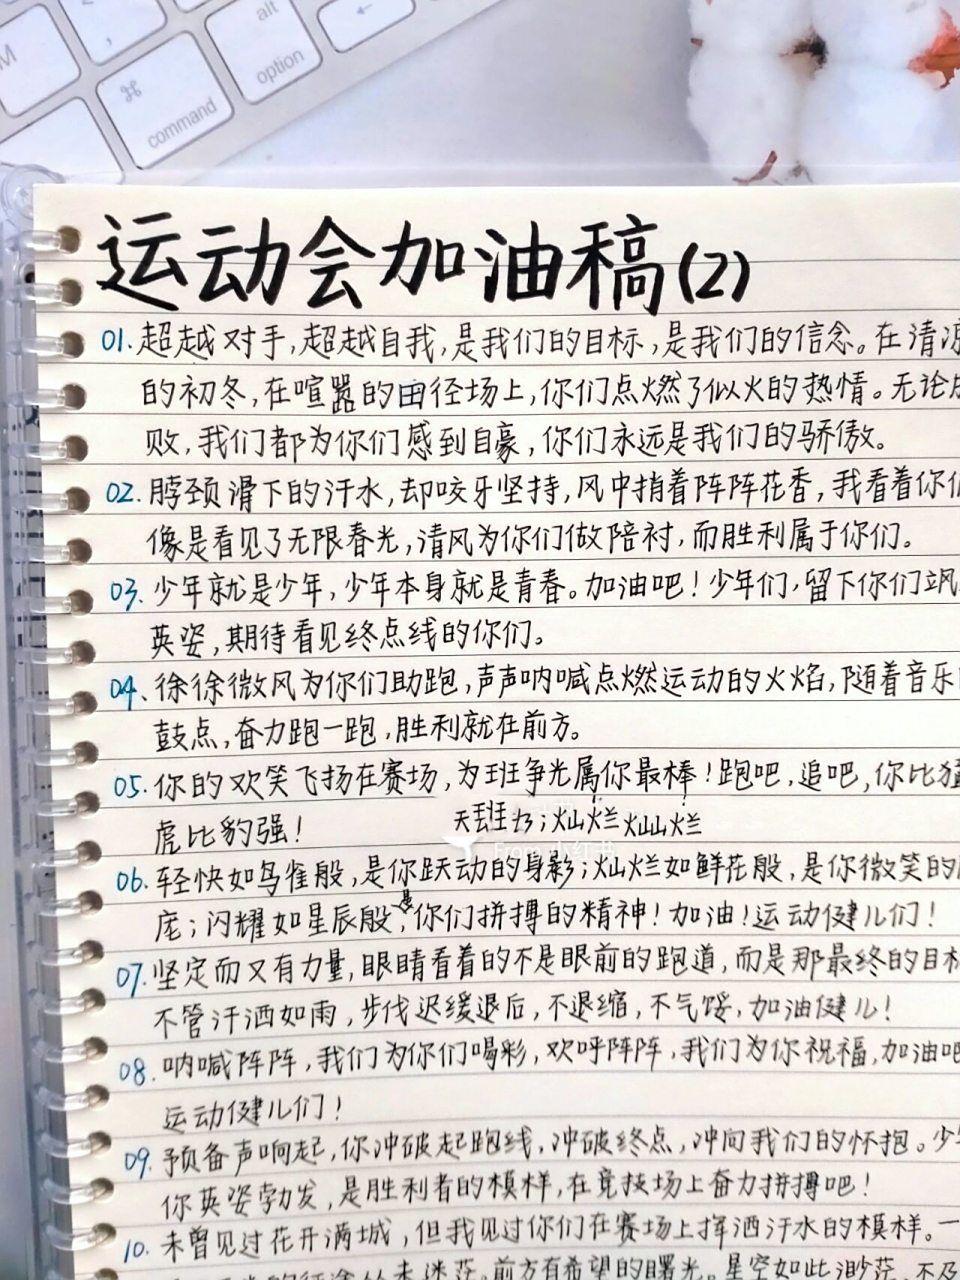 alt
option
command
运动会加油稿(2)
01.超越对手,超越自我,是我们的目标,是我们的信念。在清凉
的初冬,在喧嚣的田径场上,你们点燃了似火的热情。无论
败,我们都为你们感到自豪,你们永远是我们的骄傲。
02.脖颈滑下的汗水,却咬牙坚持,风中捎着阵阵花香,我看着你们
像是看见了无限春光,清风为你们做陪衬,而胜利属于你们。
03.少年就是少年,少年本身就是青春。加油吧!少年们,留下你们飒
英姿,期待看见终点线的你们。
04、徐徐微风为你们助跑,声声呐喊点燃运动的火焰,随着音乐
鼓点,奋力跑一跑,胜利就在前方。
05.你的欢笑飞扬在赛场,为班争光属你最棒!跑吧,追吧,你比猛
虎比豹强!
灿烂灿灿烂
From 小红书
06.轻快如鸟雀般,是你跃动的身影;灿烂如鲜花般,是你微笑的
庞;闪耀如星辰般,是你们拼搏的精神!加油!运动健儿们!
07.坚定而又有力量,眼睛看着的不是眼前的跑道,而是那最终的目标
不管汗洒如雨,步伐迟缓退后,不退缩,不气馁,加油健儿!
08.呐喊阵阵,我们为你们喝彩,欢呼阵阵,我们为你祝福,加油吧
运动健儿们!
09.预备声响起,你冲破起跑线,冲破终点,冲向我们的怀抱。少
你英姿勃发,是胜利者的模样,在竞技场上奋力拼搏吧!
10.未曾见过花开满城,但我见过你们在赛场上挥洒汗水的模样。一
的征途从未迷茫。前方有希望的曙光。星空如此渺茫,不及